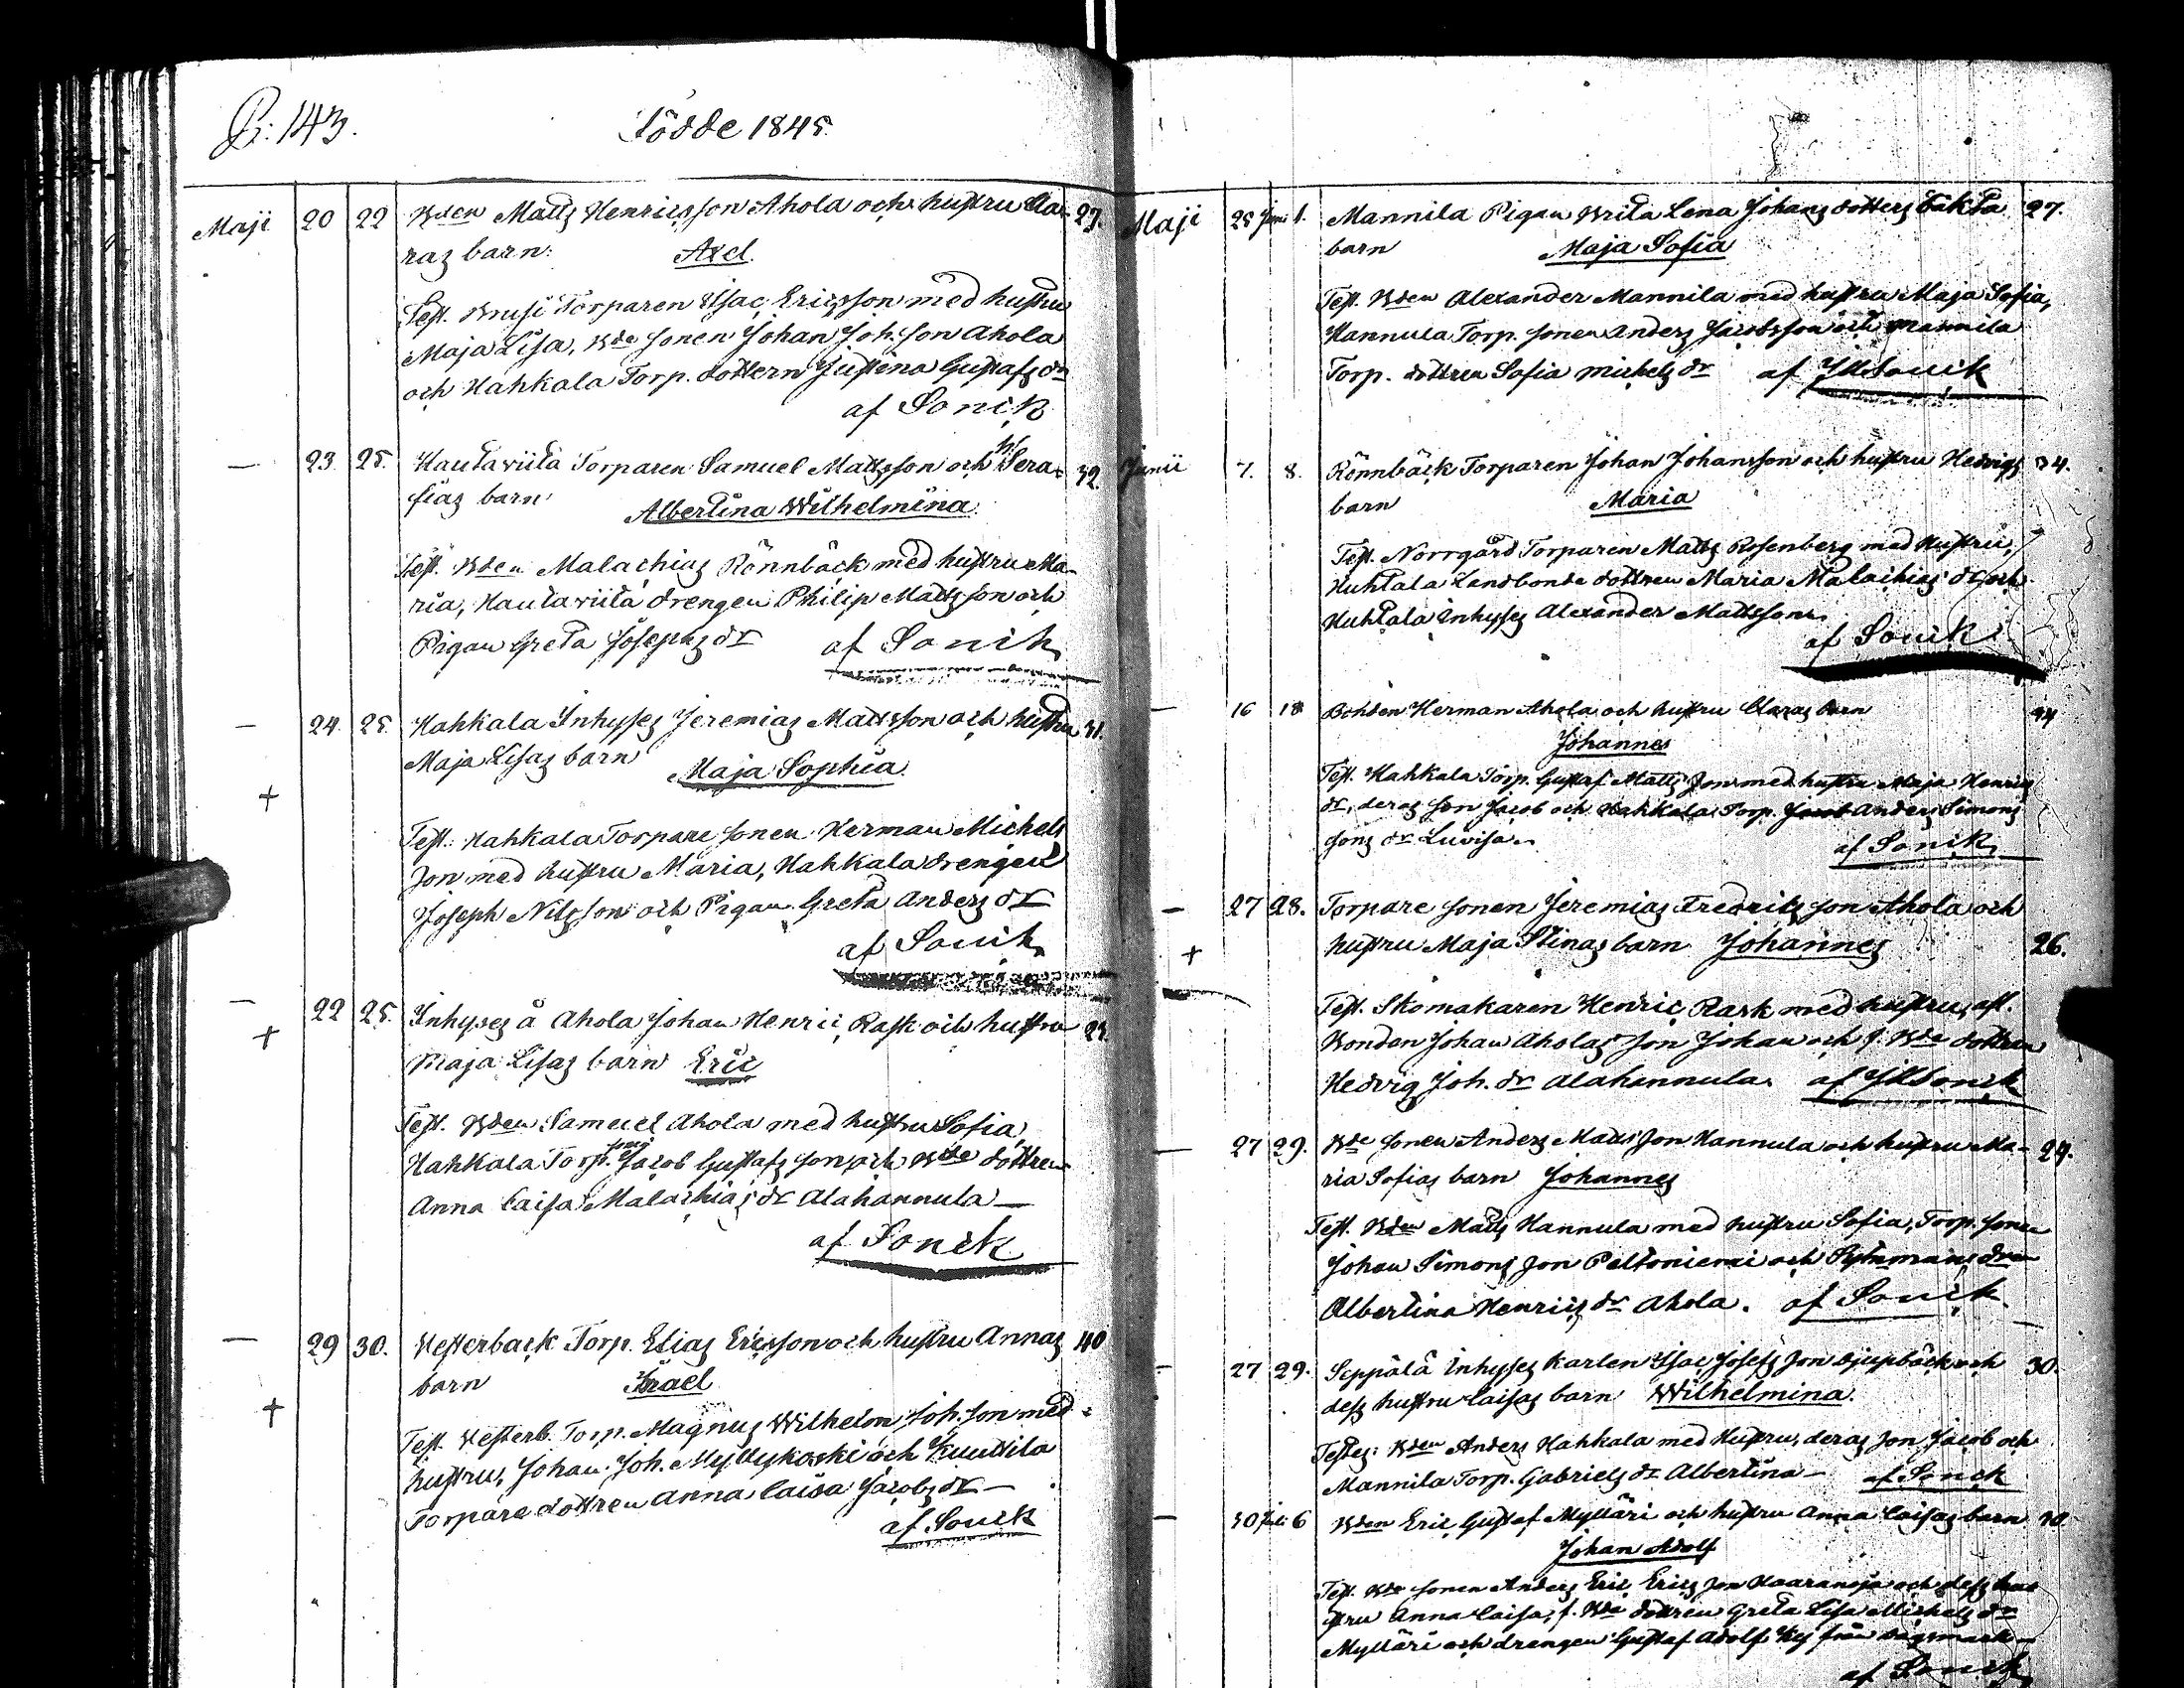 P. 143.
Födde 1845.
Maji 20 22 Bden Matts Henricsson Ahola och hustru Cla- 27.
ras barn: Axel
Test. Brusi Torparen Isac Ericsson med hustru
Maja Lisa, Bde sonen Johan Joh.son Ahola
och Hahkala Torp. dottern Justina Gustafs dr
af Sonck
— 23. 25. Hautaviita Torparen Samuel Mattsson och h. Sera- 32.
fias barn Albertina Wilhelmina
Test. Bden Malachias Rönnbäck med hustru Ma-
ria, Hautaviita drengen Philip Mattsson och
Pigan Greta Josephs dr af Sonck
— 24. 25. Hahkala Inhyses Jeremias Mattsson och hustru 31.
Maja Lisas barn Maja Sophia
+
Test. Hahkala Torpare sonen Herman Michels
son med hustru Maria, Hahkala drengen
Joseph Nilsson och Pigan Greta Anders dr
af Sonck
— 22 25. Inhyses å Ahola Johan Henric Rask och hustru
+ Maja Lisas barn Eric
Test. Bden Samuel Ahola med hustru Sofia,
Hahkala Torp. sons Jacob Gustafs son och Bde dottren
Anna Caisa Malachias dr Alahannula —
af Sonck
— 29 30. Westerback Torp. Elias Ericsson och hustru Annas 40
barn Israel
+
Test. Westerb. Torp. Magnus Wilhelm Joh.son med
hustru, Johan Joh. Myllykoski och Kuuttila
Torpare dottren Anna Caisa Jacobs dr —
af Sonck
Maji 28 Juni 1. Mannila Pigan Brita Lena Johans dotters oäkta 27.
barn Maja Sofia
Test. Bden Alexander Mannila med hustru Maja Sofia,
Hannula Torp. sonen Anders Jacobsson och Mannila
Torp. dottren Sofia Michels dr af Sonck
Junii 7. 8. Rönnbäck Torparen Johan Johansson och hustru Hedvigs 34.
barn Maria
Test. Norrgård Torparen Matts Rosenberg med hustru,
Huhtala Landbonde dottren Maria Malachias dr och
Huhtala Inhyses Alexander Mattsson
af Sonck
— 16 18 Bonden Herman Ahola och hustru Claras barn
Johannes
Test. Hahkala Torp. Gustaf Matts son med hustru Maja Henrics
dr, deras son Jacob och Hahkala Torp. Jacob Anders Simons
sons dr Lovisa.
af Sonck
— 27 28. Torpare sonen Jeremias Fredrics son Ahola och
+ hustru Maja Stinas barn Johannes 26.
Test. Skomakaren Henric Rask med hustru, afl.
Bonden Johan Aholas son Johan och f. Bde dottren
Hedvig Joh. dr Alahannula. af Sonck
— 27 29. Bde sonen Anders Matts son Hannula och hustru Ma- 29.
ria Sofias barn Johannes
Test. Bden Matts Hannula med hustru Sofia, Torp. sonen
Johan Simons son Peltoniemi och dren
Albertina Henrics dr Ahola. af Sonck.
— 27 29. Seppälä Inhyses karlen Isac Josefs son Djupbäck och 30.
dess hustru Caisas barn Wilhelmina.
Testes: Bden Anders Hahkala med hustru, deras son Jacob och
Mannila Torp. Gabriels dr Albertina — af Sonck
— 30 Juli 6 Bden Eric Gustaf Mylläri och hustru Anna Caisas barn 30
Johan Adolf
Test. Bde sonen Anders Eric Erics son Haaranoja och dess hus
tru Anna Caisa, f. Bde dottren Greta Lisa Michels dr
Mylläri och drengen Gustaf Adolf från Dagsmark
af Sonck